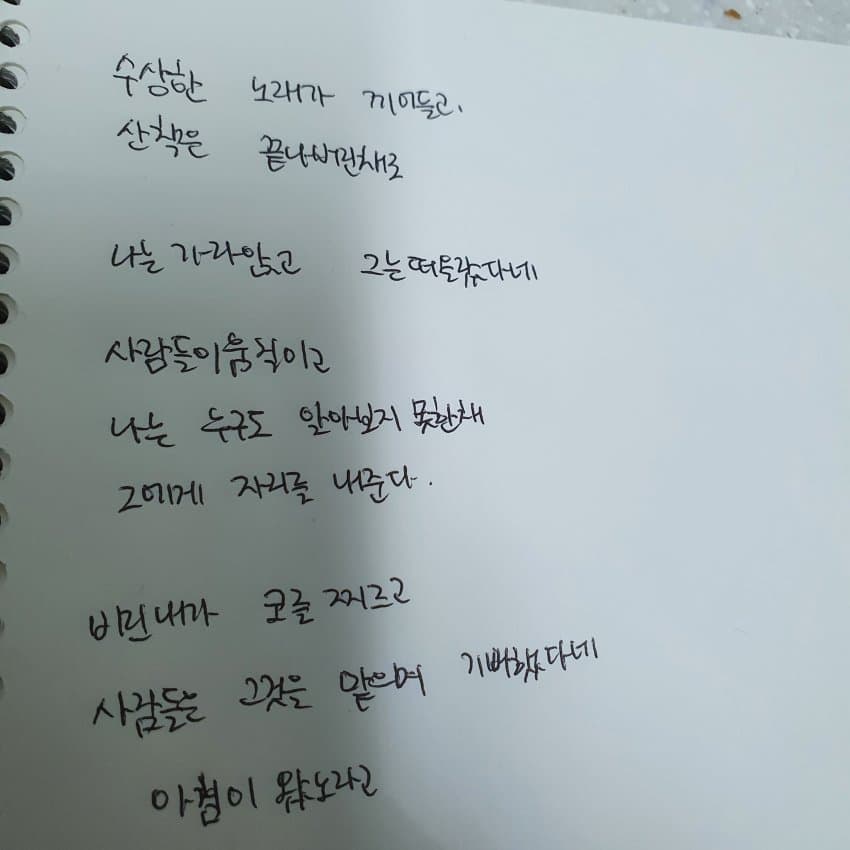 수상한 노래가 끼어들고,
산책은 끝나버린채로
나는 가라앉고 그는떠올랐다네
사람들이움직이고
나는 누구도 알아보지 못한채
그에게 자리를 내준다.
비린내가 코를 찌르고
사람들은 그것을 맡으며 기뻐했다네
아침이 왔노라고